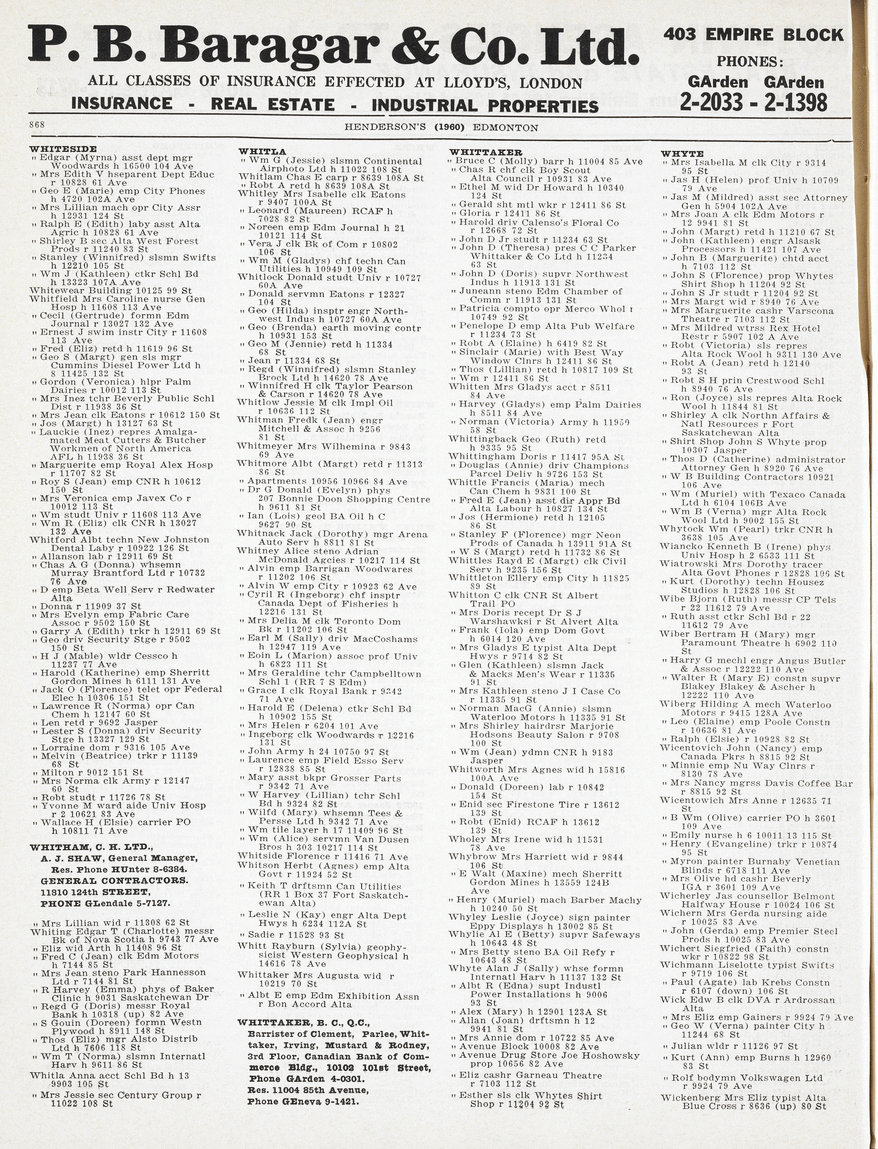 P. B. Baragar & Co. Ltd.
403 EMPIRE BLOCK
PHONES:
GArden GArden
2-2033 - 2-1398
ALL CLASSES OF INSURANCE EFFECTED AT LLOYD'S, LONDON
INSURANCE - REAL ESTATE - INDUSTRIAL PROPERTIES
868
HENDERSON'S (1960) EDMONTON
WHITESIDE
" Edgar (Myrna) asst dept mgr
Woodwards h 16500 104 Ave
" Mrs Edith V hseparent Dept Educ
r 10828 61 Ave
" Geo E (Marie) emp City Phones
h 4720 102A Ave
" Mrs Lillian mach opr City Assr
h 12931 124 St
" Ralph E (Edith) laby asst Alta
Agric h 10828 61 Ave
" Shirley B sec Alta West Forest
Prods r 11240 83 St
" Stanley (Winnifred) slsmn Swifts
h 12210 105 St
" Wm J (Kathleen) ctkr Schl Bd
h 13323 107A Ave
Whitewear Building 10125 99 St
Whitfield Mrs Caroline nurse Gen
Hosp h 11608 113 Ave
" Cecil (Gertrude) formn Edm
Journal r 13027 132 Ave
" Ernest J swim instr City r 11608
113 Ave
" Fred (Eliz) retd h 11619 96 St
" Geo S (Margt) gen sls mgr
Cummins Diesel Power Ltd h
8 11425 132 St
" Gordon (Veronica) hlpr Palm
Dairies r 10012 113 St
" Mrs Inez tchr Beverly Public Schl
Dist r 11938 36 St
" Mrs Jean clk Eatons r 10612 150 St
" Jos (Margt) h 13127 63 St
" Lauckie (Inez) repres Amalga-
mated Meat Cutters & Butcher
Workmen of North America
AFL h 11938 36 St
" Marguerite emp Royal Alex Hosp
r 11707 82 St
" Roy S (Jean) emp CNR h 10612
150 St
" Mrs Veronica emp Javex Co r
10012 113 St
" Wm studt Univ r 11608 113 Ave
" Wm R (Eliz) clk CNR h 13027
132 Ave
Whitford Albt techn New Johnston
Dental Laby r 10922 126 St
" Allanson lab r 12911 69 St
" Chas A G (Donna) whsemn
Murray Brantford Ltd r 10732
76 Ave
" D emp Beta Well Serv r Redwater
Alta
" Donna r 11909 37 St
" Mrs Evelyn emp Fabric Care
Assoc r 9502 150 St
" Garry A (Edith) trkr h 12911 69 St
" Geo driv Security Stge r 9502
150 St
" H J (Mable) wldr Cessco h
11237 77 Ave
" Harold (Katherine) emp Sherritt
Gordon Mines h 6111 131 Ave
" Jack O (Florence) telet opr Federal
Elec h 10306 151 St
" Lawrence R (Norma) opr Can
Chem h 12147 60 St
" Len retd r 9692 Jasper
" Lester S (Donna) driv Security
Stge h 13327 129 St
" Lorraine dom r 9316 105 Ave
" Melvin (Beatrice) trkr r 11139
68 St
" Milton r 9012 151 St
" Mrs Norma clk Army r 12147
60 St
" Robt studt r 11726 78 St
" Yvonne M ward aide Univ Hosp
r 2 10621 83 Ave
" Wallace H (Elsie) carrier PO
h 10811 71 Ave
WHITHAM, C. H. LTD.,
A. J. SHAW, General Manager,
Res. Phone HUnter 8-6384.
GENERAL CONTRACTORS.
11810 124th STREET,
PHONE GLendale 5-7127.
" Mrs Lillian wid r 11308 62 St
Whiting Edgar T (Charlotte) messr
Bk of Nova Scotia h 9743 77 Ave
" Eliz wid Arth h 11408 96 St
" Fred C (Jean) clk Edm Motors
h 7144 85 St
" Mrs Jean steno Park Hannesson
Ltd r 7144 81 St
" R Harvey (Emma) phys of Baker
Clinic h 9031 Saskatchewan Dr
" Regd G (Doris) messr Royal
Bank h 10318 (up) 82 Ave
" S Gouin (Doreen) formn Westn
Plywood h 8911 148 St
" Thos (Eliz) mgr Alsto Distrib
Ltd h 7606 118 St
" Wm T (Norma) slsmn Internatl
Harv h 9611 86 St
Whitla Anna acct Schl Bd h 13
9903 105 St
" Mrs Jessie sec Century Group r
11022 108 St
WHITLA
" Wm G (Jessie) slsmn Continental
Airphoto Ltd h 11022 108 St
Whitlam Chas E carp r 8639 108A St
" Robt A retd h 8639 108A St
Whitley Mrs Isabelle clk Eatons
r 9407 100A St
" Leonard (Maureen) RCAF h
7028 82 St
" Noreen emp Edm Journal h 21
10121 114 St
" Vera J clk Bk of Com r 10802
106 St
" Wm M (Gladys) chf techn Can
Utilities h 10949 109 St
Whitlock Donald studt Univ r 10727
60A Ave
" Donald servmn Eatons r 12327
104 St
" Geo (Hilda) insptr eng North-
west Indus h 10727 60A Ave
" Geo (Brenda) earth moving contr
h 10931 153 St
" Geo M (Jennie) retd h 11334
68 St
" Jean r 11334 68 St
" Regd (Winnifred) slsmn Stanley
Brock Ltd h 14620 78 Ave
" Winnifred H clk Taylor Pearson
& Carson r 14620 78 Ave
Whitlow Jessie M clk Impl Oil
r 10636 112 St
Whitman Fredk (Jean) engr
Mitchell & Assoc h 9256
81 St
Whitmeyer Mrs Wilhemina r 9843
69 Ave
Whitmore Albt (Margt) retd r 11313
86 St
" Apartments 10956 10966 84 Ave
" Dr G Donald (Evelyn) phys
207 Bonnie Doon Shopping Centre
h 9611 81 St
" Ian (Lois) geol BA Oil h C
9627 90 St
Whitnack Jack (Dorothy) mgr Arena
Auto Serv h 8811 81 St
Whitney Alice steno Adrian
McDonald Agcies r 10217 114 St
" Alvin emp Barrigan Woodwares
r 11202 106 St
" Alvin W emp City r 10923 62 Ave
" Cyril R (Ingeborg) chf insptr
Canada Dept of Fisheries h
12216 131 St
" Mrs Delia M clk Toronto Dom
Bk r 11202 106 St
" Earl M (Sally) driv MacCoshams
h 12947 119 Ave
" Eoin L (Marion) assoc prof Univ
h 6823 111 St
" Mrs Geraldine tchr Campbelltown
Schl 1 (RR 7 S Edm)
" Grace I clk Royal Bank r 9342
71 Ave
" Harold E (Delena) ctkr Schl Bd
h 10902 155 St
" Mrs Helen r 6204 101 Ave
" Ingeborg clk Woodwards r 12216
131 St
" John Army h 24 10750 97 St
" Laurence emp Field Esso Serv
r 12838 85 St
" Mary asst bkpr Grosser Parts
r 9342 71 Ave
" W Harvey (Lillian) tchr Schl
Bd h 9324 82 St
" Wilfd (Mary) whsemn Tees &
Persse Ltd h 9342 71 Ave
" Wm tile layer h 17 11409 96 St
" Wm (Alice) servmn Van Dusen
Bros h 303 10217 114 St
Whitside Florence r 11416 71 Ave
Whitson Herbt (Agnes) emp Alta
Govt r 11924 52 St
" Keith T drftsmn Can Utilities
(RR 1 Box 37 Fort Saskatch-
ewan Alta)
" Leslie N (Kay) engr Alta Dept
Hwys h 6234 112A St
" Sadie r 11528 93 St
Whitt Rayburn (Sylvia) geophy-
sicist Western Geophysical h
14616 78 Ave
Whittaker Mrs Augusta wid r
10219 70 St
" Albt E emp Edm Exhibition Assn
r Bon Accord Alta
WHITTAKER, B. C., Q.C.,
Barrister of Clement, Parlee, Whit-
taker, Irving, Mustard & Rodney,
3rd Floor, Canadian Bank of Com-
merce Bldg., 10102 101st Street,
Phone GArden 4-0301.
Res. 11004 85th Avenue,
Phone GEneva 9-1421.
WHITTAKER
" Bruce C (Molly) barr h 11004 85 Ave
" Chas R chf clk Boy Scout
Alta Council r 10931 83 Ave
" Ethel M wid Dr Howard h 10340
124 St
" Gerald sht mtl wkr r 12411 86 St
" Gloria r 12411 86 St
" Harold driv Calenso's Floral Co
r 12668 72 St
" John D Jr studt r 11234 63 St
" John D (Theresa) pres C C Parker
Whittaker & Co Ltd h 11234
63 St
" John D (Doris) supvr Northwest
Indus h 11913 131 St
" Juneann steno Edm Chamber of
Comm r 11913 131 St
" Patricia compto opr Merco Whol r
10749 92 St
" Penelope D emp Alta Pub Welfare
r 11234 73 St
" Robt A (Elaine) h 6419 82 St
" Sinclair (Marie) with Best Way
Window Clnrs h 12411 86 St
" Thos (Lillian) retd h 10817 109 St
" Wm r 12411 86 St
Whitten Mrs Gladys acct r 8511
84 Ave
" Harvey (Gladys) emp Palm Dairies
h 8511 84 Ave
" Norman (Victoria) Army h 11959
58 St
Whittingback Geo (Ruth) retd
h 9335 95 St
Whittingham Doris r 11417 95A St
" Douglas (Annie) driv Champions
Parcel Deliv h 9726 153 St
Whittle Francis (Maria) mech
Can Chem h 9831 100 St
" Fred E (Jean) asst dir Appr Bd
Alta Labour h 10827 134 St
" Jos (Hermione) retd h 12105
86 St
" Stanley F (Florence) mgr Neon
Prods of Canada h 13911 91A St
" W S (Margt) retd h 11732 86 St
Whittles Rayd E (Margt) clk Civil
Serv h 9235 156 St
Whittleton Ellery emp City h 11825
89 St
Whitton C clk CNR St Albert
Trail PO
" Mrs Doris recept Dr S J
Warshawksi r St Alvert Alta
" Frank (Iola) emp Dom Govt
h 6014 120 Ave
" Mrs Gladys E typist Alta Dept
Hwys r 9714 82 St
" Glen (Kathleen) slsmn Jack
& Macks Men's Wear r 11335
91 St
" Mrs Kathleen steno J I Case Co
r 11335 91 St
" Norman MacG (Annie) slsmn
Waterloo Motors h 11335 91 St
" Mrs Shirley hairdrsr Marjorie
Hodsons Beauty Salon r 9708
100 St
" Wm (Jean) ydmn CNR h 9183
Jasper
Whitworth Mrs Agnes wid h 15816
100A Ave
" Donald (Doreen) lab r 10842
154 St
" Enid sec Firestone Tire r 13612
139 St
" Robt (Enid) RCAF h 13612
139 St
Wholey Mrs Irene wid h 11531
78 Ave
Whybrow Mrs Harriett wid r 9844
106 St
" E Walt (Maxine) mech Sherritt
Gordon Mines h 13559 124B
Ave
" Henry (Muriel) mach Barber Machy
h 10240 50 St
Whyley Leslie (Joyce) sign painter
Eppy Displays h 13002 85 St
Whylie Al E (Betty) supvr Safeways
h 10643 48 St
" Mrs Betty steno BA Oil Refy r
10643 48 St
Whyte Alan J (Sally) whse formn
Internatl Harv h 11137 132 St
" Albt R (Edna) supt Industl
Power Installations h 9006
93 St
" Alex (Mary) h 12901 123A St
" Allan (Joan) drftsmn h 12
9941 81 St
" Mrs Annie dom r 10722 85 Ave
" Avenue Block 10008 82 Ave
" Avenue Drug Store Joe Hoshowsky
prop 10656 82 Ave
" Eliz cashr Garneau Theatre
r 7103 112 St
" Esther sls clk Whytes Shirt
Shop r 11204 92 St
WHYTE
" Mrs Isabella M clk City r 9314
95 St
" Jas H (Helen) prof Univ h 10709
79 Ave
" Jas M (Mildred) asst sec Attorney
Gen h 5904 102A Ave
" Mrs Joan A clk Edm Motors r
12 9941 81 St
" John (Margt) retd h 11210 67 St
" John (Kathleen) engr Alsask
Processors h 11421 107 Ave
" John B (Marguerite) chtd acct
h 7103 112 St
" John S (Florence) prop Whytes
Shirt Shop h 11204 92 St
" John S Jr studt r 11204 92 St
" Mrs Margt wid r 8940 76 Ave
" Mrs Marguerite cashr Varscona
Theatre r 7103 112 St
" Mrs Mildred wtrss Rex Hotel
Restr r 5907 102 A Ave
" Robt (Victoria) sls repres
Alta Rock Wool h 9311 130 Ave
" Robt A (Jean) retd h 12140
93 St
" Robt S H prin Crestwood Schl
h 8940 76 Ave
" Ron (Joyce) sls repres Alta Rock
Wool h 11844 81 St
" Shirley A clk Northn Affairs &
Natl Resources r Fort
Saskatchewan Alta
" Shirt Shop John S Whyte prop
10307 Jasper
" Thos D (Catherine) administrator
Attorney Gen h 8920 76 Ave
" W B Building Contractors 10921
106 Ave
" Wm (Muriel) with Texaco Canada
Ltd h 6104 106B Ave
" Wm B (Verna) mgr Alta Rock
Wool Ltd h 9002 155 St
Whytock Wm (Pearl) trkr CNR h
3638 105 Ave
Wiancko Kenneth B (Irene) phys
Univ Hosp h 2 6533 111 St
Wiatrowski Mrs Dorothy tracer
Alta Govt Phones r 12828 106 St
" Kurt (Dorothy) techn Housez
Studios h 12828 106 St
Wibe Bjorn (Ruth) messr CP Tels
r 22 11612 79 Ave
" Ruth asst ctkr Schl Bd r 22
11612 79 Ave
Wiber Bertram H (Mary) mgr
Paramount Theatre h 6902 110
St
" Harry G mechl engr Angus Butler
& Assoc r 12222 110 Ave
" Walter R (Mary E) constn supvr
Blakey Blakey & Ascher h
12222 110 Ave
Wiberg Hilding A mech Waterloo
Motors r 9415 128A Ave
" Leo (Elaine) emp Poole Constn
r 10636 81 Ave
" Ralph (Elsie) r 10928 82 St
Wicentovich John (Nancy) emp
Canada Pkrs h 8815 92 St
" Minnie emp Nu Way Clnrs r
8130 78 Ave
" Mrs Nancy mgrss Davis Coffee Bar
r 8815 92 St
Wicentowich Mrs Anne r 12635 71
St
" B Wm (Olive) carrier PO h 3601
109 Ave
" Emily nurse h 6 10011 13 115 St
" Henry (Evangeline) trkr r 10874
95 St
" Myron painter Burnaby Venetian
Blinds r 6718 111 Ave
" Mrs Olive hd cashr Beverly
IGA r 3601 109 Ave
Wicherley Jas counsellor Belmont
Halfway House r 10024 106 St
Wichern Mrs Gerda nursing aide
r 10025 83 Ave
" John (Gerda) emp Premier Steel
Prods h 10025 83 Ave
Wichert Siegfried (Faith) constn
wkr r 10822 98 St
Wichmann Liselotte typist Swifts
r 9719 106 St
" Paul (Agate) lab Krebs Constn
r 6107 (down) 106 St
Wick Edw B clk DVA r Ardrossan
Alta
" Mrs Eliz emp Gainers r 9924 79 Ave
" Geo W (Verna) painter City h
11244 68 St
" Julian wldr r 11126 97 St
" Kurt (Ann) emp Burns h 12960
83 St
" Rolf bodymn Volkswagen Ltd
r 9924 79 Ave
Wickenberg Mrs Eliz typist Alta
Blue Cross r 8636 (up) 80 St